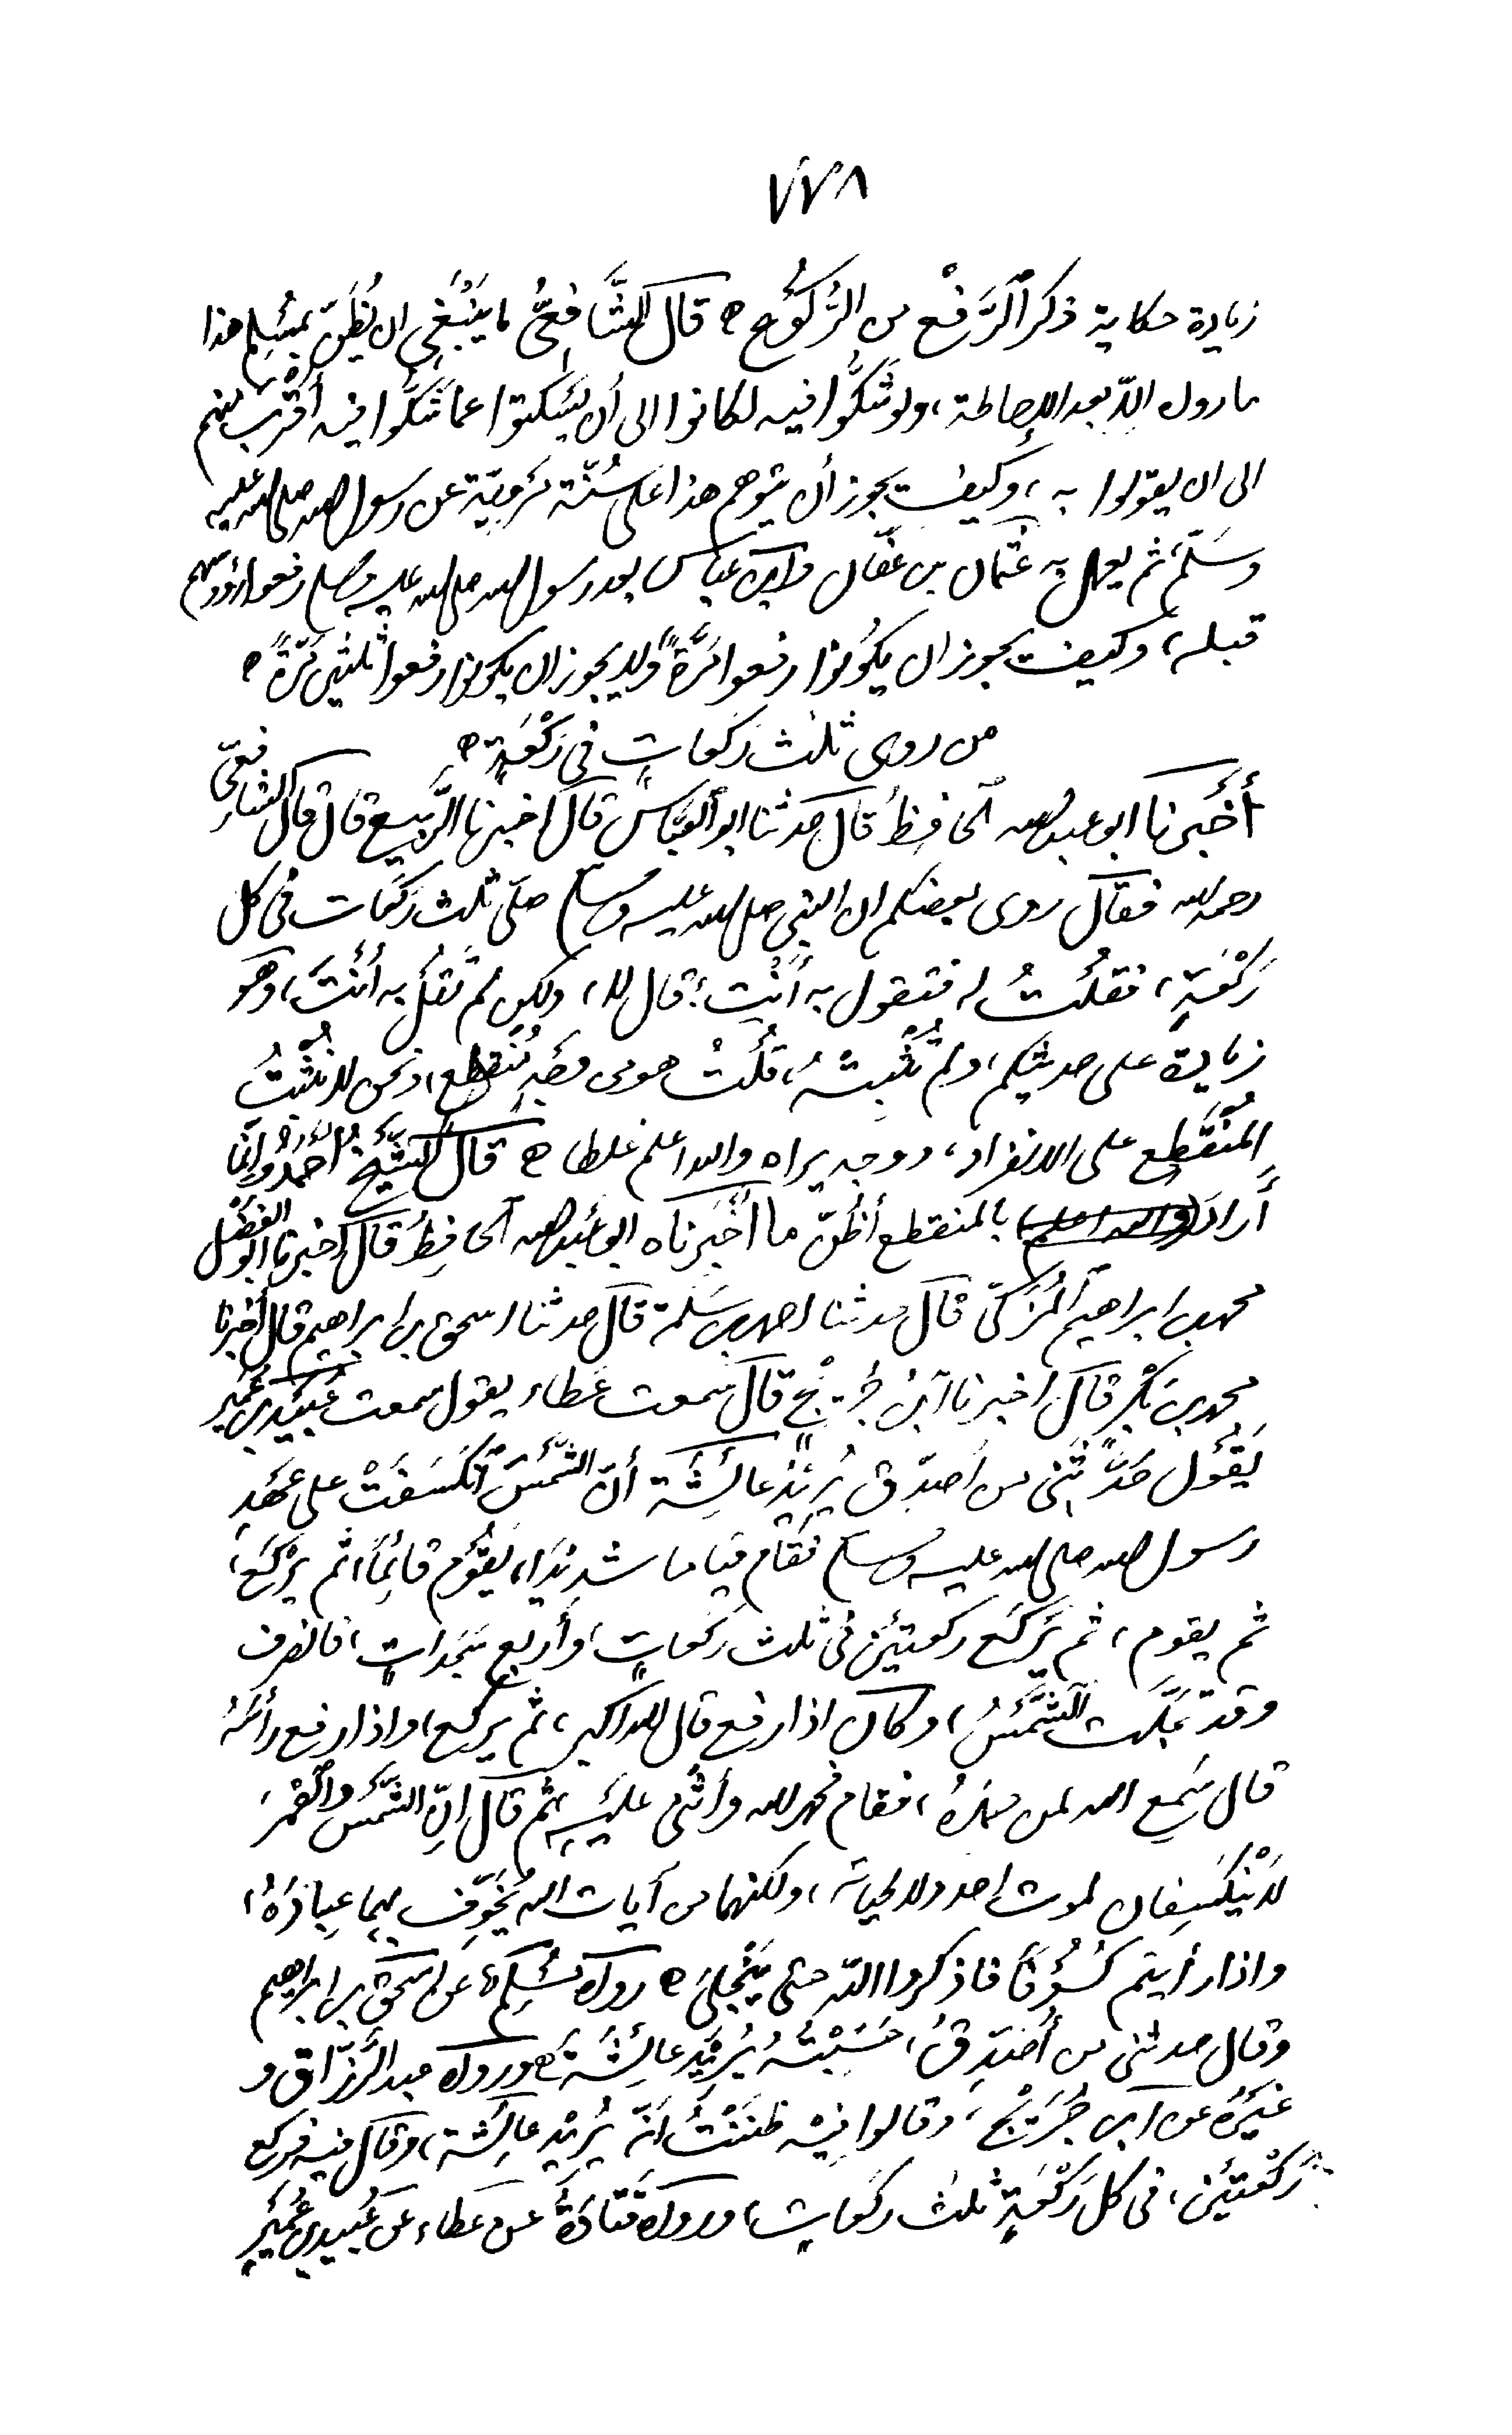 ٧٧٨
زيادة حكاية ذكر الرَّفْع من الرُّكُوْع ه قال الشَّافِعِيُّ ما يَنْبَغِي ان يُظَنّ بمُسْلِم هذا
ما رواه الا بعد الاحاطة، ولو شَكُّوا فيه لكانوا الى أن يَسْكتوا عما شَكُّوا فيه أقْرَب منهم
الى ان يقولوا به، وكيف يجوز أن يتوهم هذا على سُنّة مَرويّة عن رسول الله صلى الله عليه
وسَلّم، ثم يعمل به عُثمان بن عَفّان وابن عباس بعد رسول الله صلى الله عليه وسلم رفعوا رؤوسهم
قبله، وكيف يجوز ان يكُونوا رفعوا مَرَّةً ولا يجوز ان يكونوا رفعوا ثلثين مَرّةً ه
من روى ثلث ركعاتٍ في رَكْعَةٍ ه
أَخْبَرنا ابو عبد الله الحافظُ قال حدثنا ابو العَبّاس قال اخبرنا الرَّبيع قال قال الشافعيّ
رحمه الله فقال روى بعضكم ان النبي صلى الله عليه وسلم صلّى ثلث ركعات في كل
رَكْعَةٍ، فقلتُ له فتقول به أنت؟ قال لا، ولكن لم تَقُلْ به أَنْتَ، وهو
زيادة على حديثكم، ولم تُثْبِتْهُ، قُلتُ هو من وجه مُنْقطِع، ونحن لا نُثْبِتُ
المُنْقَطِع على الانفراد، ووجه يراه والله اعلم غلطا ه قال الشَّيْخ أحْمَدُ وانّما
أرادَ بالمنقطع أظُنّ ما أَخْبَرناه ابو عَبد الله الحافِظُ قال اخبرنا ابو الفضل
محمد بن ابراهيم المُزَكّي قال حدثنا احمد بن سَلَمة قال حدثنا اسحق بن ابراهيم قال أخبرنا
محمد بن بَكْرٍ قال اخبرنا ابْنُ جُرَيْج قال سَمعت عَطاء يقول سمعت عُبَيْد بن عُمَيْرٍ
يَقُوْل حَدَّثَنِي من أُصدّق يُرِيْدُ عائِشَة أنّ الشَّمْسَ انْكَسَفَتْ على عَهْدِ
رسول الله صلى الله عليه وسلم فقام قياما شديْدَا، يَقُوْم قائِمًا، ثم يَرْكَع،
ثم يقوم، ثم يَرْكَع ركعتين في ثلث ركعاتٍ، وأربع سَجَداتٍ، فانصرف
وقد تجلّت الشَّمْسُ، وكان اذا رفع قال الله اكبر، ثم يركع، واذا رفع رأسَهُ
قال سَمِع الله لمن حمدَهُ، فقام فحمد الله وأثنى عليْه، ثم قال اِنّ الشَّمْسَ والْقَمَرَ
لا يَنْكَسِفان لموت احد ولا لحياته، ولكنهما من آيات الله يُخَوِّف بهما عِبادَهُ،
واذا رأيتم كُسُوْفًا فاذكروا اللّه حتى يَنْجلِيَ ه رواه مُسْلِمٌ عن اسحق بن ابراهيم
وقال حدثني من أُصَدِّقُ، حَسِبْتُهُ يُرِيْد عائِشَةَ ه ورواه عبد الرَّزّاق و
غيرُهُ عن ابن جُرَيْجٍ، وقالوا فيْه ظننْتُ أَنّه يُرِيْد عائِشة، وقال فيه فركع
رَكْعَتَيْن، في كل رَكْعَةٍ ثلثُ ركعاتٍ، ورواه قَتَادَةُ عن عَطاء عن عُبَيد بن عُمَيْرٍ